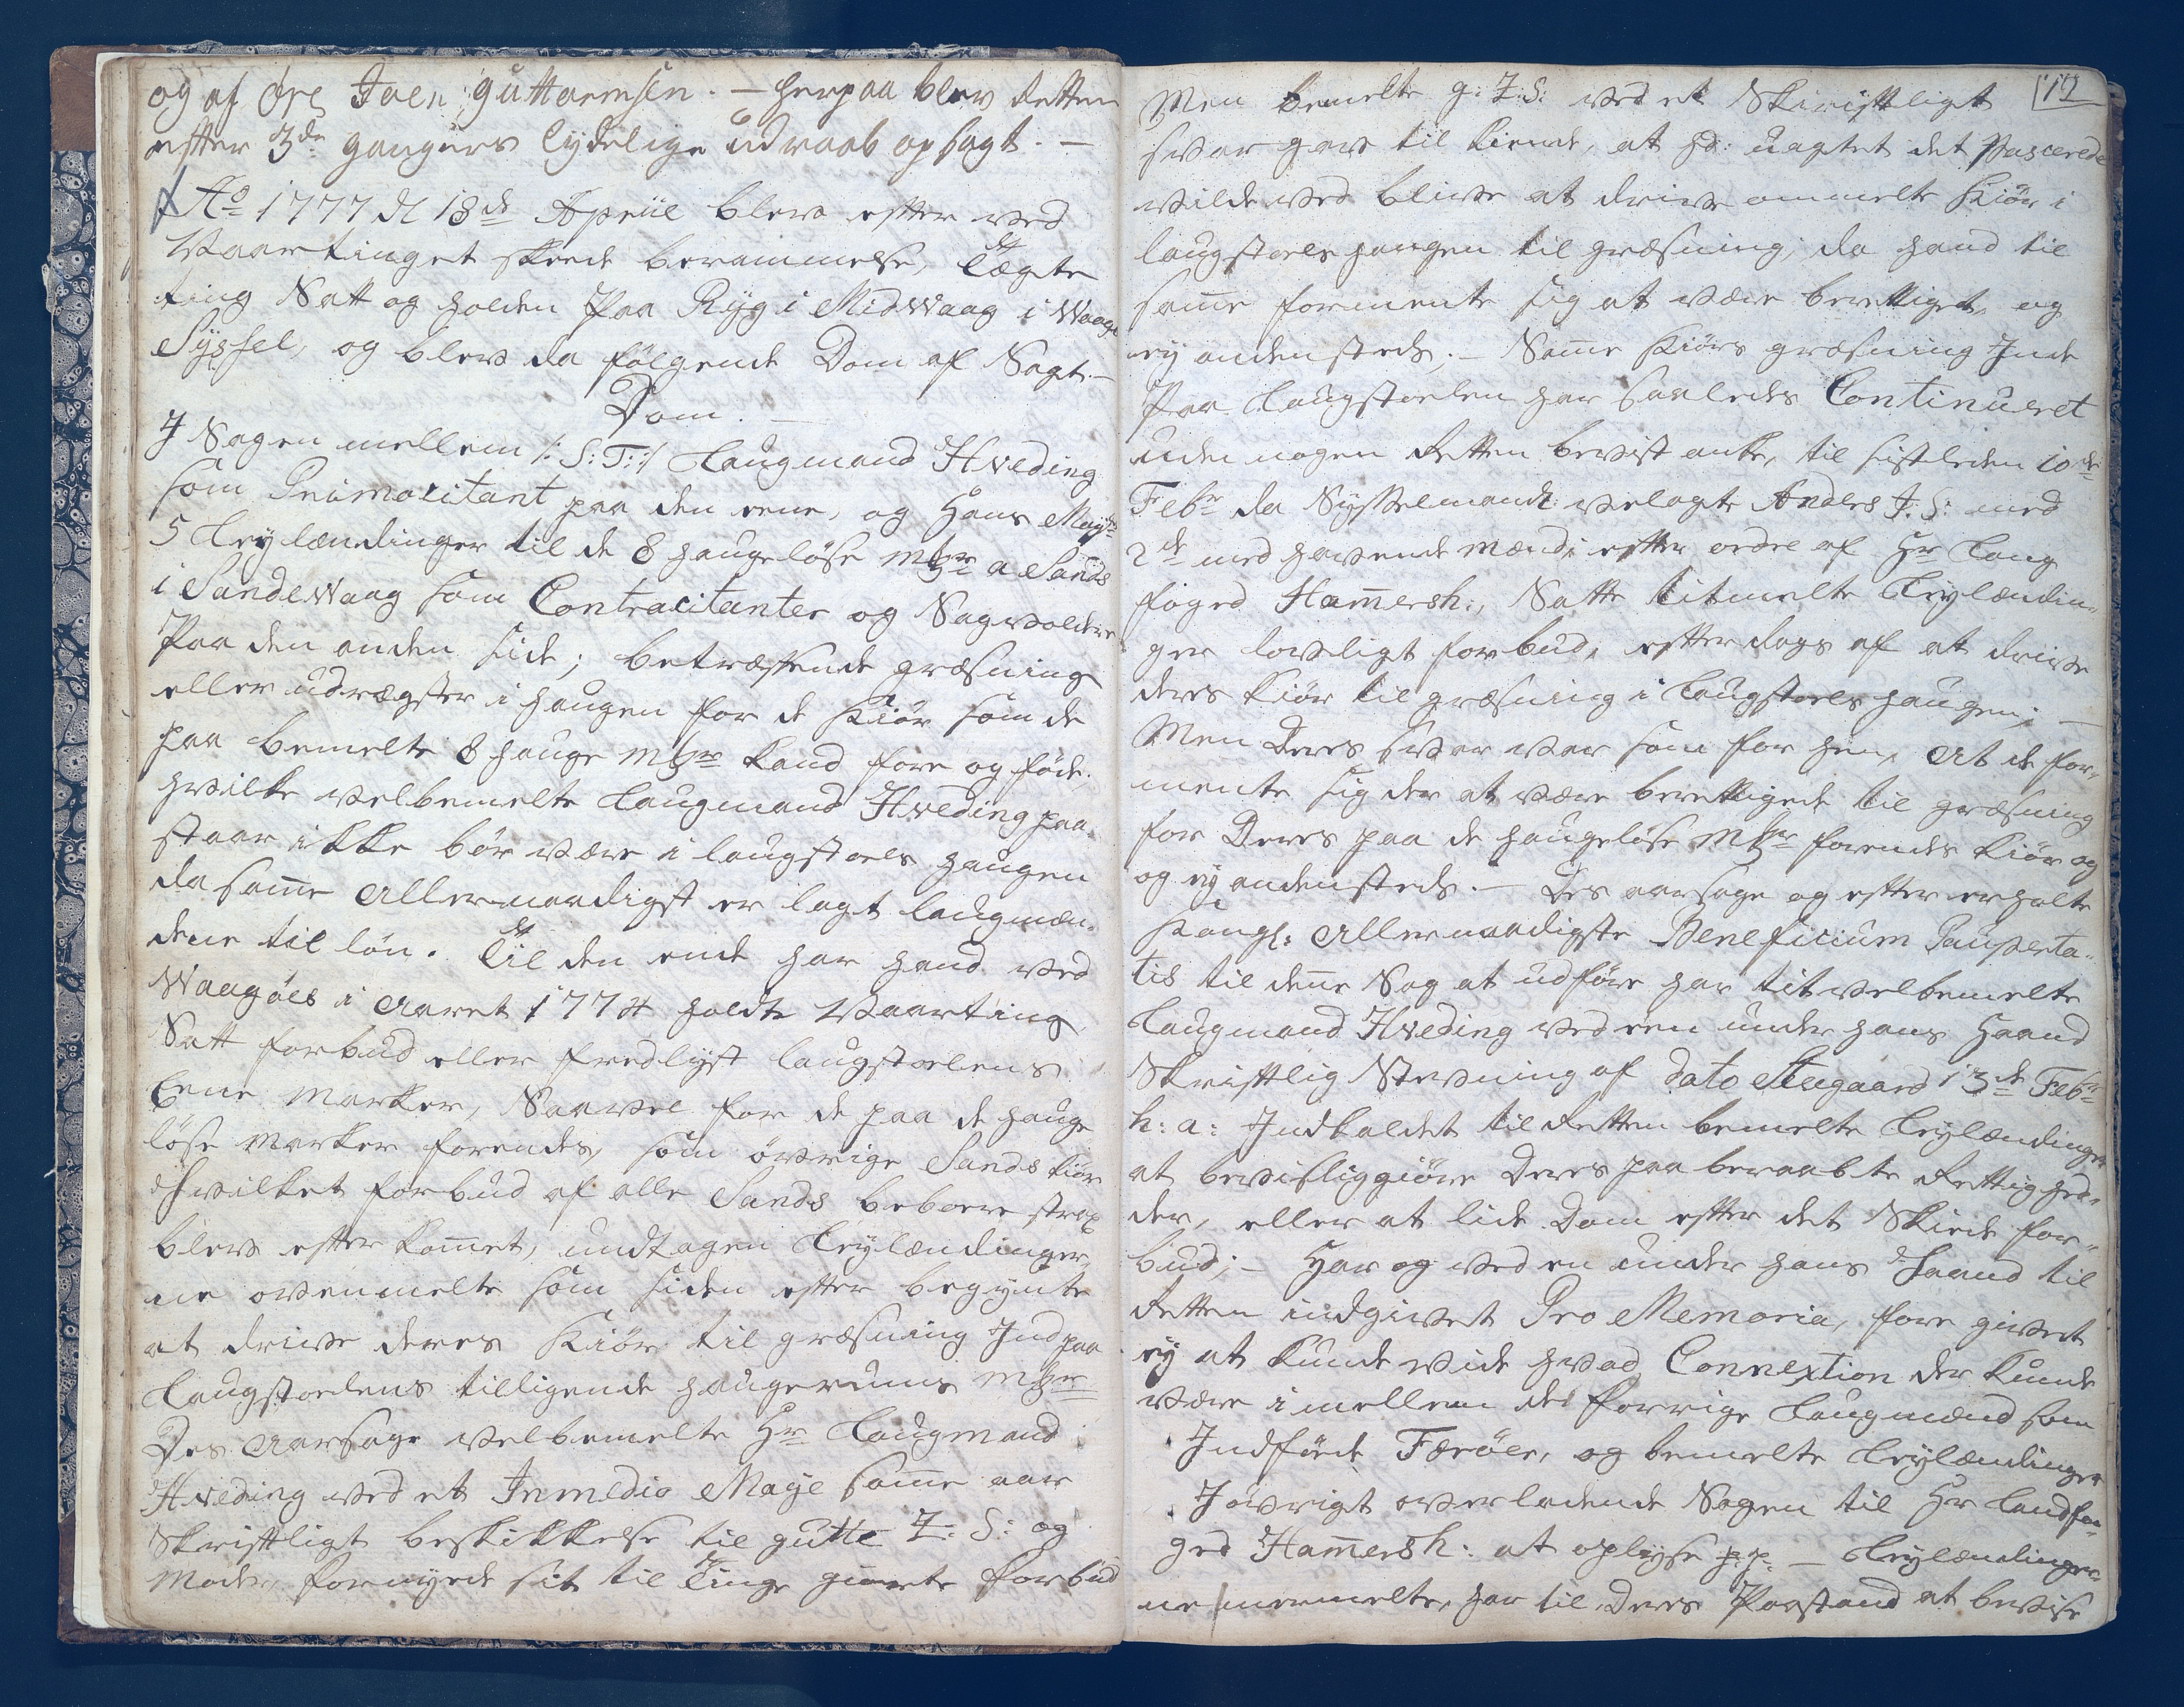 og af Øre Joen Guttormsen. – herpaa blev Retten
efter 3de gangers lydelige udraab opsagt. –
Ao 1777 d 18de Apriil blev efter ved
Vaartinget skeede berammelse, Lægte
ting Satt og holden paa Ryg i Midwaag i Waage
Syssel, og blev da følgende Dom af Sagt. –
Dom. –
I Sagen mellem /: S: T: :/ Laugmand Hveding
som Primocitant paa den eene, og Hans Mayts
5 Leylændinger til de 8 haugeløse Mkr a Sands
i Sandewaag som Contracitanter og Sagvoldere
paa den anden side; betræffende græsning
eller udrægster i haugen for de Kiør som de
paa bemelte 8 hauge Mkr kand fore og føde;
hvilke velbemelte Laugmand Hveding paa-
staar ikke bør være i laugstoels haugen
da same allernaadigst er lagt laugmæn-
dene til løn. Til den ende har hand ved
Waagøes i Aaret 1774 holdte Vaarting
Satt forbud eller fredlyst laugstoelens
Eene Marker, Saavel for de paa de hauge
løse Marker forendes, som øvrige Sands kiør
Hvilket forbud af alle Sands beboere strax
blev efter komet, undtagen Leylændinger-
ne ovenmelte som siden efter begynte
at drive deres Kiør til græsning Ind paa
Laugstoelens tilligende haugerums Mkr
Des Aarsage velbemelte Hr Laugmand
Hveding ved et Inmedio Maye same aar
Skriftligt beskikkelse til Gutte I: S: og
Moder, fornyede sit til Tinge giorte forbud
12
Men bemelte G: I: S: ved et Skriftligt
svar gav til kiende, at hd: uagtet det Passerede
vilde ved blive at drive ommelte Kiør i
laugstoels haugen til græsning; da hand til
same formente sig at være berettiget, og
ey andensteds; – Same Kiørs græsning Inde
paa Laugstoelen har saaledes Continueret
uden nogen Retten bevist anke, til sistleden 10de
Febr da Sysselmand velagte Andres J: S: med
2de med havende mænd, efter ordre af Hr Laug
foged Hamersh:, Satte titmelte Leylændin-
ger lovligt forbud, efterdags af at drive
deres Kiør til græsning i Laugstoels haugen; –
Men Deres svar var som for hen, at de for-
mente sig der at være berettigede til græsning
for Deres paa de haugeløse Mkr forendes kiør og
og ey andensteds. – Des aarsage og efter erholte
Kongl: Allernaadigste Beneficium Pauperta-
tis til dene Sag at udføre har tit velbemelte
Laugmand Hveding ved een under hans Haand
Skriftlig Stevning af dato Stegaard 13de Febr
h: a: Indkaldet til Retten bemelte Leylændinger
at bevisliggiøre Deres paa beraabte Rettighed-
der, eller at lide Dom efter det Skeede for-
bud; – Har og ved en under hans Haand til
Retten indgivet Pro Memoria, fore givet
ey at kunde vide hvad Connextion der kunde
være imellem de forrige Laugmænd som
Indføde Færøer, og bemelte Leylændinger
I øvrigt overladende Sagen til Hr Landfo-
ged Hamersh: at oplyse pp. – Leylændinger-
ne meermelte, har til Deres Paastand at bevise